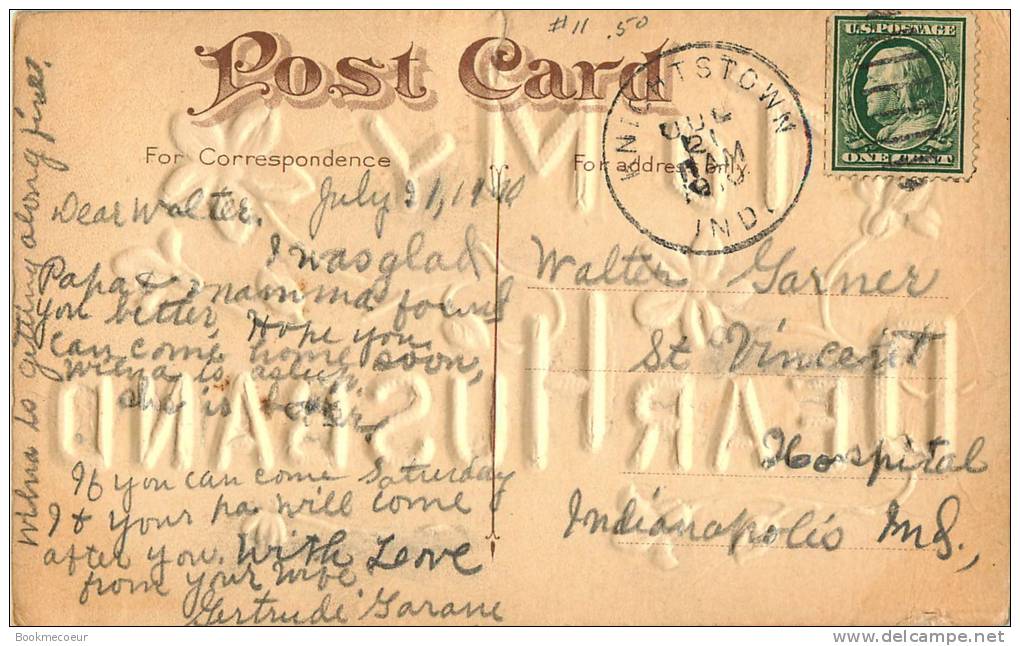 #11 .50
Post Card
U.S. POSTAGE
ONE CENT
KNIGHTSTOWN
JUL
21
AM
1910
IND.
For Correspondence
For address only
July 21, 1910
Dear Walter,
I was glad
Papa & mamma found
you better, Hope you
can come home soon,
Wilna is asleep
she is better,
If you can come Saturday
I & your pa will come
after you. With Love
from your wife
Gertrude
Wilna is getting along fine.
Walter Garner
St Vincent
Hospital
Indianapolis Ind.,
TO MY
DEAR HUSBAND
Bookmecoeur
delcampe.net